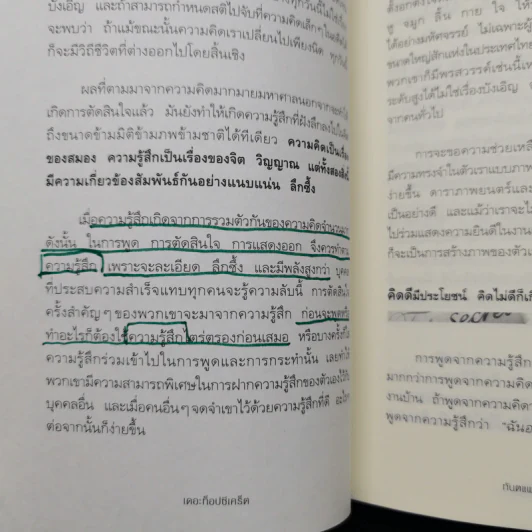 บังเอิญ และถ้าสามารถกำหนดสติไปจับที่ความคิดเล็กๆ
จะพบว่า ถ้าแม้ขณะนั้นความคิดเราเปลี่ยนไปเพียงนิด
ก็จะมีวิถีชีวิตที่ต่างออกไปโดยสิ้นเชิง
ผลที่ตามมาจากความคิดมากมายมหาศาลนอกจากจะ
เกิดการตัดสินใจแล้ว มันยังทำให้เกิดความรู้สึกที่ฝังลึก
ถึงขนาดข้ามมิติข้ามภพข้ามชาติได้ทีเดียว ความคิดเป็น
ของสมอง ความรู้สึกเป็นเรื่องของจิต วิญญาณ แต่ทั้งสอง
มีความเกี่ยวข้องสัมพันธ์กันอย่างแนบแน่น ลึกซึ้ง
เมื่อความรู้สึกเกิดจากการรวมตัวกันของความคิดจำนวน
ดังนั้น ในการพูด การตัดสินใจ การแสดงออก จึงควรทำ
ความรู้สึก เพราะจะละเอียด ลึกซึ้ง และมีพลังสูงกว่า
ที่ประสบความสำเร็จแทบทุกคนจะรู้ความลับนี้ การตัดสิน
ครั้งสำคัญๆ ของพวกเขาจะมาจากความรู้สึก ก่อนจะ
ทำอะไรก็ต้องใช้ความรู้สึกไตร่ตรองก่อนเสมอ หรือบางครั้ง
ความรู้สึกร่วมเข้าไปในการพูดและการกระทำนั้น
พวกเขามีความสามารถพิเศษในการฝากความรู้สึกของตัวเอง
บุคคลอื่น และเมื่อคนอื่นๆ จดจำเขาไว้ด้วยความรู้สึกที่ดี
ต่อจากนั้นก็ง่ายขึ้น
เดอะท็อปซีเคร็ต
ซู จมูก ลิ้น กาย ใจ
ได้อย่างมหัศจรรย์ ไม่เฉพาะ
ขนาดใหญ่สักแห่งในประเทศไทย
พวกเขาก็มีพรสวรรค์เช่นนี้
ระดับสูงได้ไม่ใช่เรื่องบังเอิญ
จากคนทั่วไป
การจะขอความช่วยเหลือ
มีความทรงจำในตัวเราแบบ
ง่ายขึ้น ดาราภาพยนตร์และ
เป็นอย่างดี และแม้ว่าเราจะ
ไปร่วมแสดงความยินดีในงาน
ก็จะเป็นการสร้างภาพของตัว
คิดดีมีประโยชน์ คิดไม่ดีก็
การพูดจากความรู้สึก
มากกว่าการพูดจากความคิด
งานบ้าน ถ้าพูดจากความคิด
พูดจากความรู้สึกว่า "ฉัน